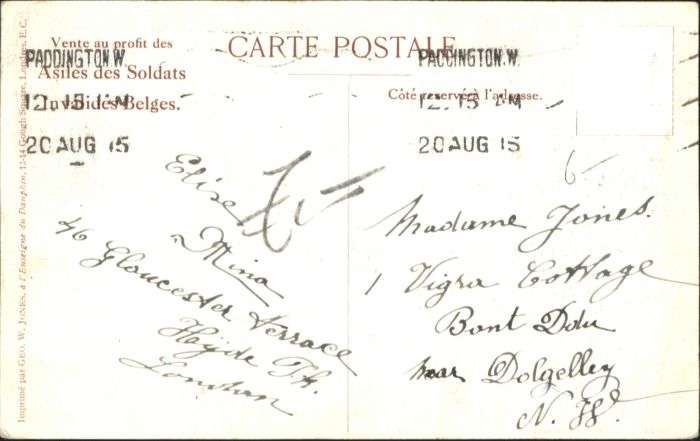 Imprimé par GEO. W. JONES, à l'Enseigne du Dauphin, 12-14 Gough Square, Londres, E.C.
Vente au profit des
Asiles des Soldats
Invalides Belges.
CARTE POSTALE
Côté reservéra l'adresse.
PADDINGTON.W.
12.15 PM
20 AUG 15
PADDINGTON.W.
12.15 PM
20 AUG 15
Elise
Mina
46 Gloucester terrace
Hyde Pk.
London
6-
Madame Jones.
1 Vigra Cottage
Bont Ddu
near Dolgelley
N. W.